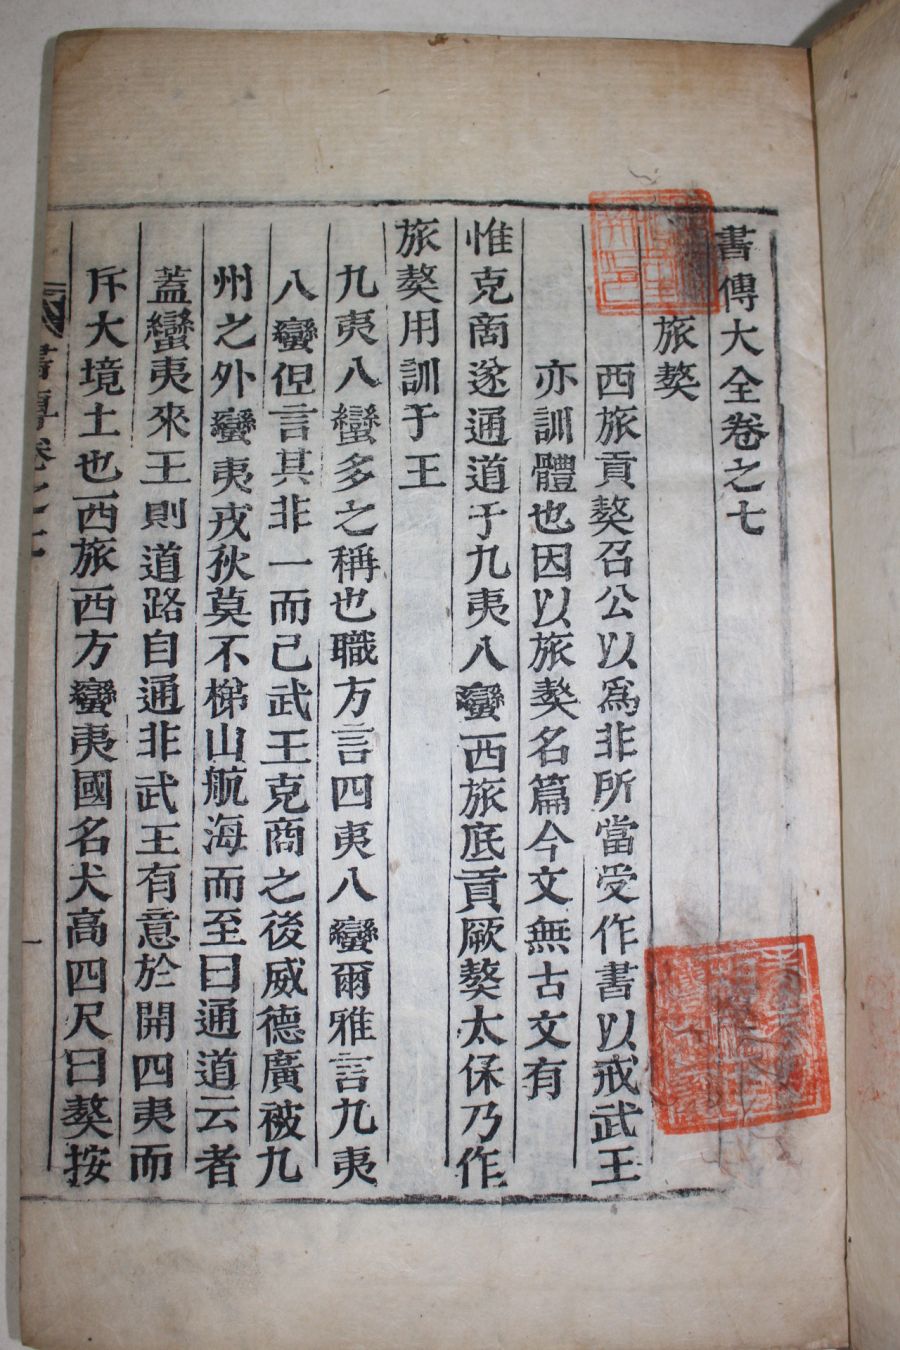 書傳大全卷之七
旅獒
西旅貢獒召公以爲非所當受作書以戒武王
亦訓體也因以旅獒名篇今文無古文有
惟克商遂通道于九夷八蠻西旅底貢厥獒太保乃作
旅獒用訓于王
九夷八蠻多之稱也職方言四夷八蠻爾雅言九夷
八蠻但言其非一而已武王克商之後威德廣被九
州之外蠻夷戎狄莫不梯山航海而至曰通道云者
蓋蠻夷來王則道路自通非武王有意於開四夷而
斥大境土也西旅西方蠻夷國名犬高四尺曰獒按
書傳卷之七
一